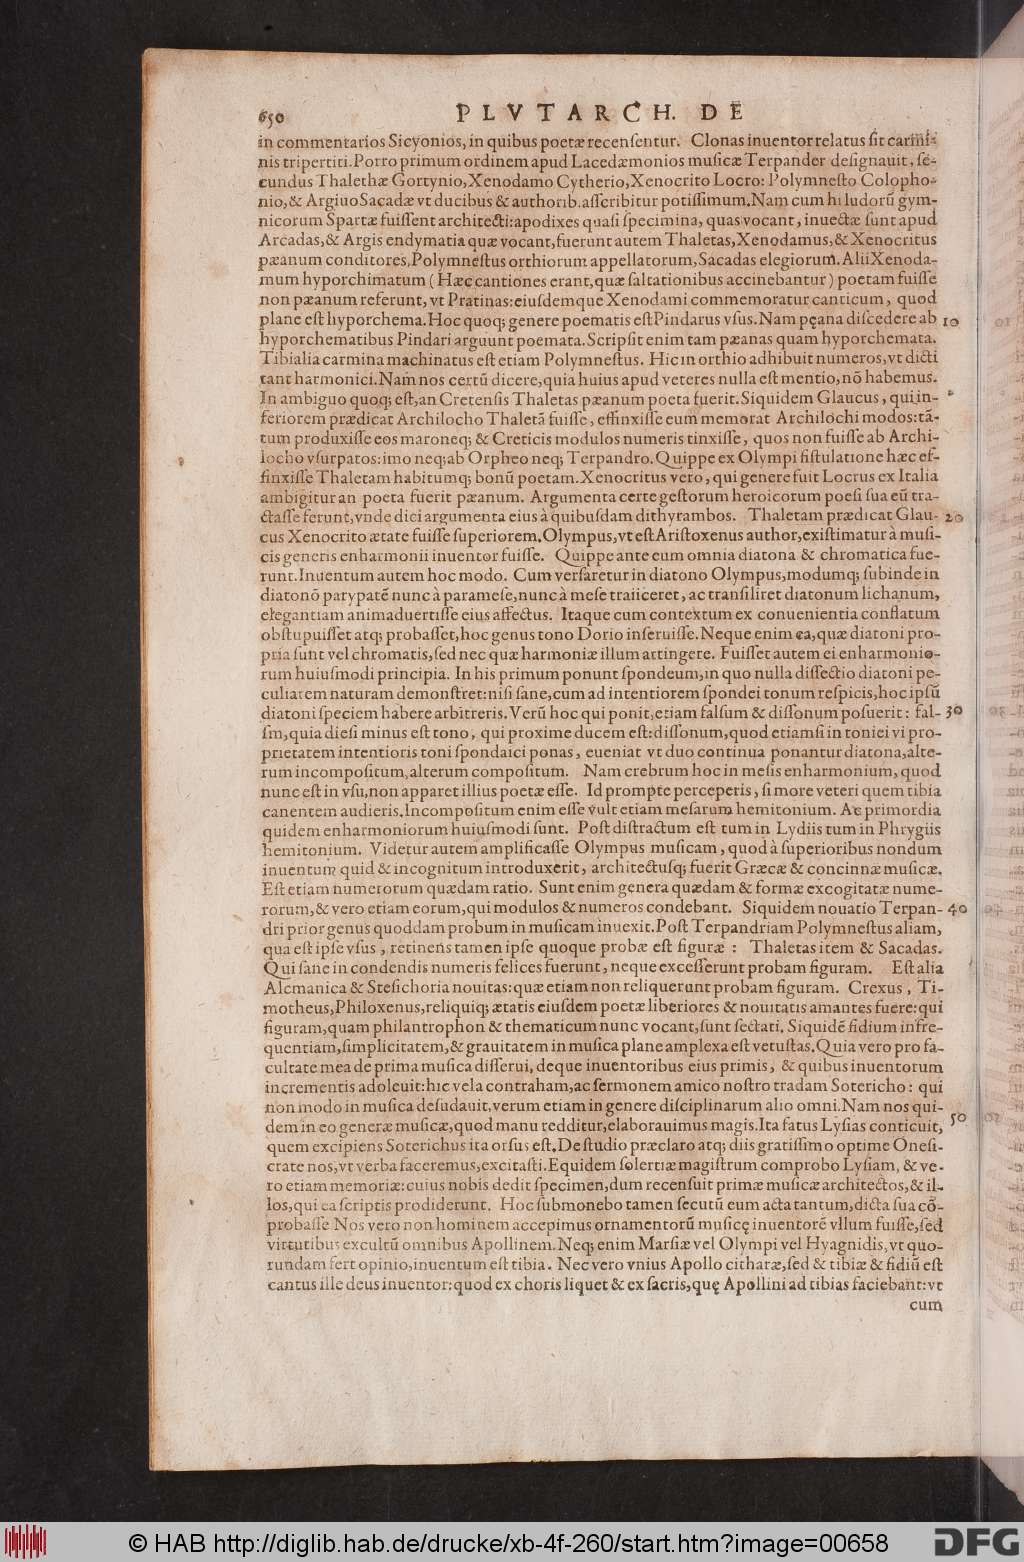 650 PLVTARCH. DE
in commentarios Sicyonios, in quibus poetæ recensentur. Clonas inuentor relatus sit carmi-
nis tripertiti. Porro primum ordinem apud Lacedæmonios musicæ Terpander designauit, se-
cundus Thalethæ Gortynio, Xenodamo Cytherio, Xenocrito Locro: Polymnesto Colopho-
nio, & Argiuo Sacadæ vt ducibus & authorib. asseribitur potissimum. Nam cum hi ludorū gym-
nicorum Spartæ fuissent architecti: apodixes quasi specimina, quas vocant, inuectæ sunt apud
Arcadas, & Argis endymatia quæ vocant, fuerunt autem Thaletas, Xenodamus, & Xenocritus
pæanum conditores, Polymnestus orthiorum appellatorum, Sacadas elegiorum. Alii Xenoda-
mum hyporchimatum (Hæc cantiones erant, quæ saltationibus accinebantur) poetam fuisse
non pæanum referunt, vt Pratinas: eiusdemque Xenodami commemoratur canticum, quod
plane est hyporchema. Hoc quoq; genere poematis est Pindarus vsus. Nam pęana discedere ab 10
hyporchematibus Pindari arguunt poemata. Scripsit enim tam pæanas quam hyporchemata.
Tibialia carmina machinatus est etiam Polymnestus. Hic in orthio adhibuit numeros, vt dicti
tant harmonici. Nam nos certū dicere, quia huius apud veteres nulla est mentio, nō habemus.
In ambiguo quoq; est, an Cretensis Thaletas pæanum poeta fuerit. Siquidem Glaucus, qui in-
feriorem prædicat Archilocho Thaletā fuisse, effinxisse eum memorat Archilochi modos: tā-
tum produxisse eos maroneq; & Creticis modulos numeris tinxisse, quos non fuisse ab Archi-
locho vsurpatos: imo neq; ab Orpheo neq; Terpandro. Quippe ex Olympi fistulatione hæc ef-
finxisse Thaletam habitumq; bonū poetam. Xenocritus vero, qui genere fuit Locrus ex Italia
ambigitur an poeta fuerit pæanum. Argumenta certe gestorum heroicorum poesi sua eū tra-
ctasse ferunt, vnde dici argumenta eius à quibusdam dithyrambos. Thaletam prædicat Glau- 20
cus Xenocrito ætate fuisse superiorem. Olympus, vt est Aristoxenus author, existimatur à musi-
cis generis enharmonii inuentor fuisse. Quippe ante eum omnia diatona & chromatica fue-
runt. Inuentum autem hoc modo. Cum versaretur in diatono Olympus, modumq; subinde in
diatonō parypatē nunc à paramese, nunc à mese traiiceret, ac transiliret diatonum lichanum,
elegantiam animaduertisse eius affectus. Itaque cum contextum ex conuenientia conflatum
obstupuisset atq; probasset, hoc genus tono Dorio inseruisse. Neque enim ea, quæ diatoni pro-
pria sunt vel chromatis, sed nec quæ harmoniæ illum attingere. Fuisset autem ei enharmonio-
rum huiusmodi principia. In his primum ponunt spondeum, in quo nulla dissectio diatoni pe-
culiarem naturam demonstret: nisi sane, cum ad intentiorem spondei tonum respicis, hoc ipsū
diatoni speciem habere arbitreris. Verū hoc qui ponit, etiam falsum & dissonum posuerit: fal- 30
sm, quia diesi minus est tono, qui proxime ducem est: dissonum, quod etiamsi in toniei vi pro-
prietatem intentioris toni spondaici ponas, eueniat vt duo continua ponantur diatona, alte-
rum incompositum, alterum compositum. Nam crebrum hoc in mesis enharmonium, quod
nunc est in vsu, non apparet illius poetæ esse. Id prompte perceperis, si more veteri quem tibia
canentem audieris. Incompositum enim esse vult etiam mesarum hemitonium. Ac primordia
quidem enharmoniorum huiusmodi sunt. Post distractum est tum in Lydiis tum in Phrygiis
hemitonium. Videtur autem amplificasse Olympus musicam, quod à superioribus nondum
inuentum quid & incognitum introduxerit, architectusq; fuerit Græcæ & concinnæ musicæ.
Est etiam numerorum quædam ratio. Sunt enim genera quædam & formæ excogitatæ nume-
rorum, & vero etiam eorum, qui modulos & numeros condebant. Siquidem nouatio Terpan- 40
dri prior genus quoddam probum in musicam inuexit. Post Terpandriam Polymnestus aliam,
qua est ipse vsus, retinens tamen ipse quoque probæ est figuræ: Thaletas item & Sacadas.
Qui sane in condendis numeris felices fuerunt, neque excesserunt probam figuram. Est alia
Alcmanica & Stesichoria nouitas: quæ etiam non reliquerunt probam figuram. Crexus, Ti-
motheus, Philoxenus, reliquiq; ætatis eiusdem poetæ liberiores & nouitatis amantes fuere: qui
figuram, quam philantrophon & thematicum nunc vocant, sunt sectati. Siquidē fidium infre-
quentiam, simplicitatem, & grauitatem in musica plane amplexa est vetustas. Quia vero pro fa-
cultate mea de prima musica disserui, deque inuentoribus eius primis, & quibus inuentorum
incrementis adoleuit: hic vela contraham, ac sermonem amico nostro tradam Sotericho: qui
non modo in musica desudauit, verum etiam in genere disciplinarum alio omni. Nam nos qui-
dem in eo generæ musicæ, quod manu redditur, elaborauimus magis. Ita fatus Lysias conticuit, 50
quem excipiens Soterichus ita orsus est. De studio præclaro atq; diis gratissimo optime Onesi-
crate nos, vt verba faceremus, excitasti. Equidem solertiæ magistrum comprobo Lysiam, & ve-
ro etiam memoriæ: cuius nobis dedit specimen, dum recensuit primæ musicæ architectos, & il-
los, qui ea scriptis prodiderunt. Hoc submonebo tamen secutū eum acta tantum, dicta sua cō-
probasse Nos vero non hominem accepimus ornamentorū musicę inuentorē vllum fuisse, sed
virtutibus excultū omnibus Apollinem. Neq; enim Marsiæ vel Olympi vel Hyagnidis, vt quo-
rundam fert opinio, inuentum est tibia. Nec vero vnius Apollo citharæ, sed & tibiæ & fidiū est
cantus ille deus inuentor: quod ex choris liquet & ex sacris, quę Apollini ad tibias faciebant: vt
cum
© HAB http://diglib.hab.de/drucke/xb-4f-260/start.htm?image=00658 DFG